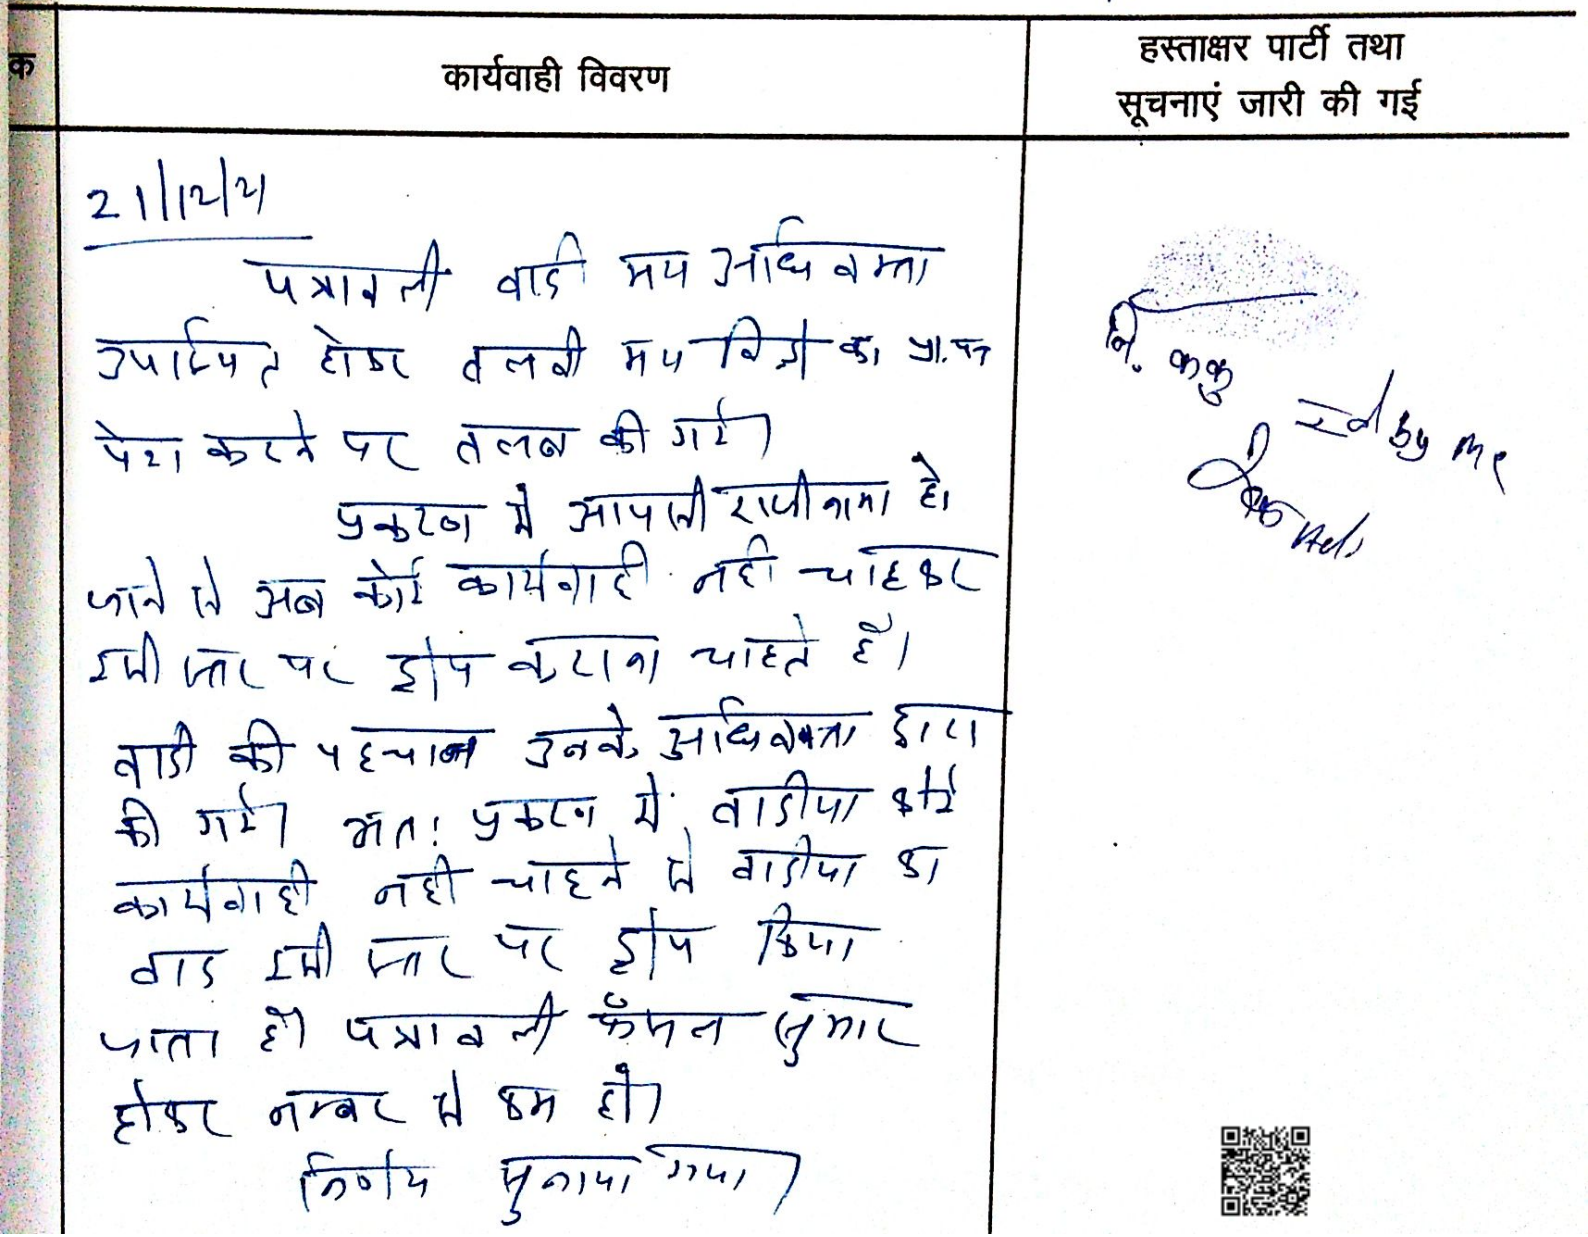 क
कार्यवाही विवरण
हस्ताक्षर पार्टी तथा
सूचनाएं जारी की गई
21/12/21
पत्रावली वादी मय अधिवक्ता
उपस्थित होकर तलबी मय का प्रा. पत्र
पेश करने पर तलब की गई।
प्रकरण में आपसी राजीनामा हो
जाने से अब कोई कार्यवाही नही चाहकर
इसी स्तर पर ड्रोप कराना चाहते है।
वादी की पहचान उनके अधिवक्ता द्वारा
की गई। अतः प्रकरण में वादीया कोई
कार्यवाही नही चाहने से वादीया का
वाद इसी स्तर पर ड्रोप किया
जाता है। पत्रावली फैसल सुमार
होकर नम्बर से कम हो।
निर्णय सुनाया गया।
नि. ककु
by me